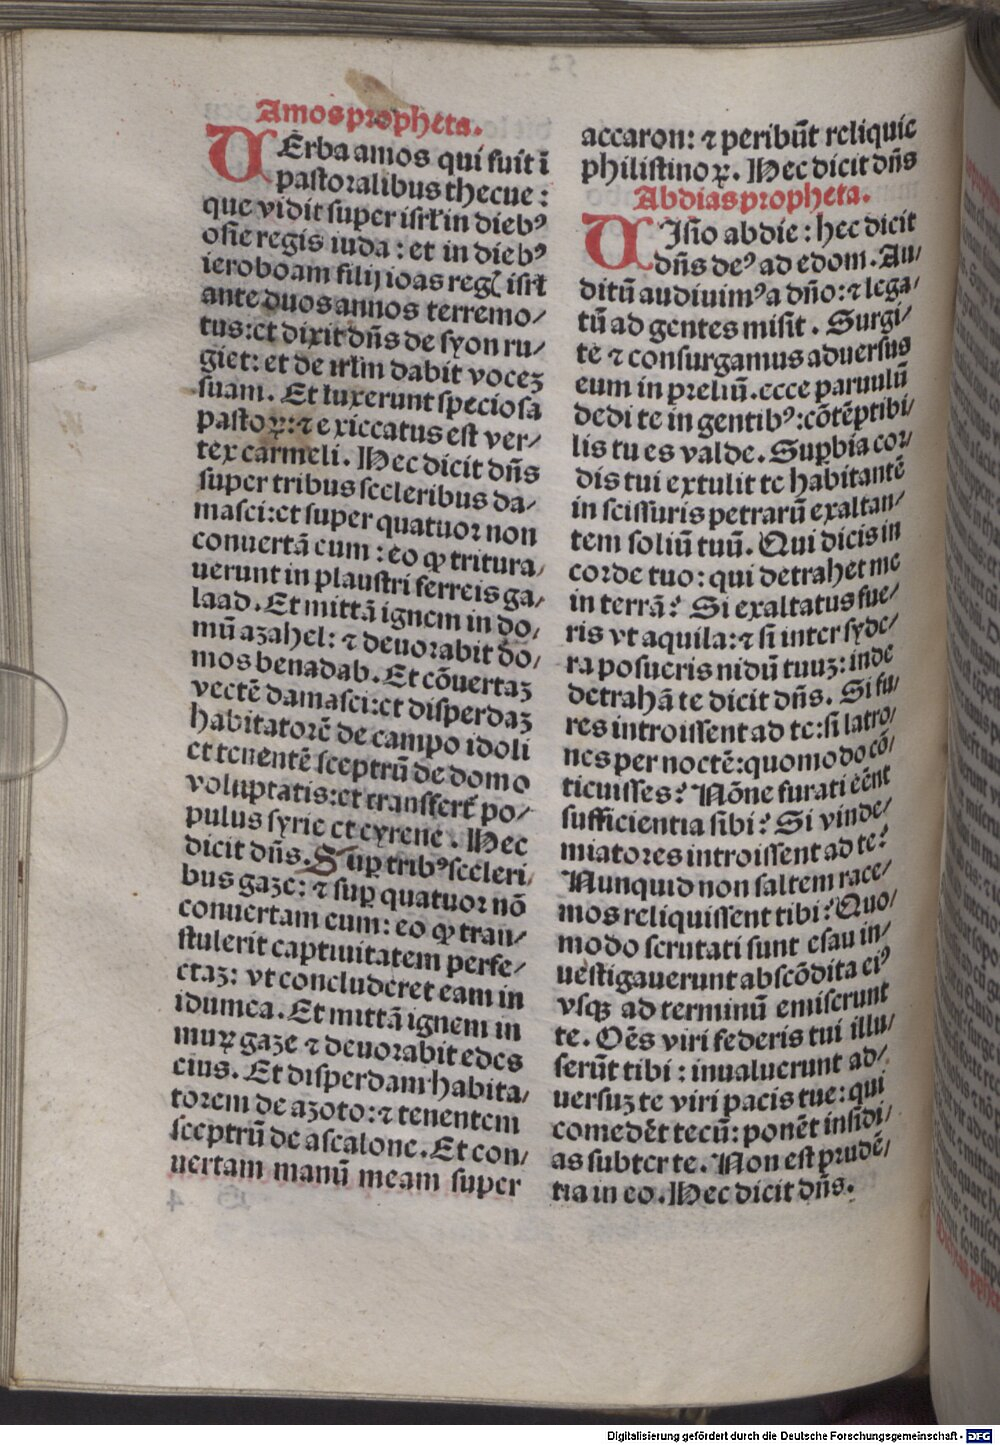 Amos propheta.
VErba amos qui fuit ī
pastoralibus thecue :
que vidit super isrł in diebꝰ
osie regis iuda : et in diebꝰ
ieroboam filij ioas reg̃ isrł
ante duos annos terremo/
tus: et dixit dn̄s de syon ru/
giet: et de irłm dabit vocez
suam. Et luxerunt speciosa
pastoꝝ: ⁊ exiccatus est ver/
tex carmeli. Hec dicit dn̄s
super tribus sceleribus da/
masci: et super quatuor non
conuertā eum : eo ꝙ tritura/
uerunt in plaustri ferreis ga/
laad. Et mittā ignem in do/
mū azahel: ⁊ deuorabit do/
mos benadab. Et cōuertaz
vectē damasci: et disperdaz
habitatorē de campo idoli
et tenentē sceptrū de domo
voluptatis: et transferet̄ po/
pulus syrie et cyrene . Hec
dicit dn̄s. Suꝑ tribꝰ sceleri/
bus gaze: ⁊ suꝑ quatuor nō
conuertam eum: eo ꝙ tran/
stulerit captiuitatem perfe/
ctaz: vt concluderet eam in
idumea. Et mittā ignem in
muꝝ gaze ⁊ deuorabit edes
eius. Et disperdam habita/
torem de azoto: ⁊ tenentem
sceptrū de ascalone. Et con/
uertam manū meam super
accaron: ⁊ peribūt reliquie
philistinoꝝ. Hec dicit dn̄s
Abdias propheta.
VIsio abdie : hec dicit
dn̄s deꝰ ad edom. Au/
ditū audiuimꝰ a dn̄o: ⁊ lega/
tū ad gentes misit . Surgi/
te ⁊ consurgamus aduersus
eum in preliū. ecce paruulū
dedi te in gentibꝰ: cōtēptibi/
lis tu es valde. Suꝑbia cor/
dis tui extulit te habitantē
in scissuris petrarū exaltan/
tem soliū tuū. Qui dicis in
corde tuo : qui detrahet me
in terrā? Si exaltatus fue/
ris vt aquila: ⁊ si inter syde/
ra posueris nidū tuuz: inde
detrahā te dicit dn̄s. Si fu/
res introissent ad te: si latro/
nes per noctē: quomodo cō/
ticuisses? Nōne furati eēnt
sufficientia sibi? Si vinde/
miatores introissent ad te?
Nunquid non saltem race/
mos reliquissent tibi? Quo/
modo scrutati sunt esau in/
uestigauerunt abscōdita eiꝰ
vsqꝫ ad terminū emiserunt
te. Oēs viri federis tui illu/
serūt tibi : inualuerunt ad/
uersuz te viri pacis tue: qui
comedēt tecū: ponēt insidi/
as subter te. Non est prudē/
tia in eo. Hec dicit dn̄s.
Digitalisierung gefördert durch die Deutsche Forschungsgemeinschaft - DFG